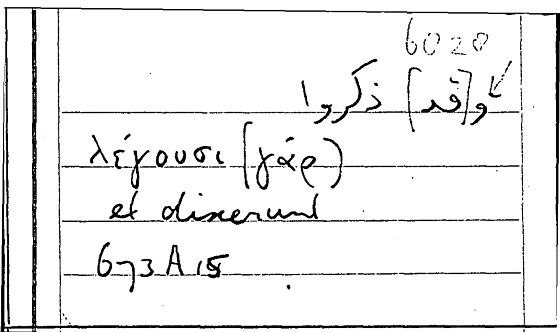 6020
و[قد] ذكروا
λέγουσι (γάρ)
et dixerunt
673 A 15